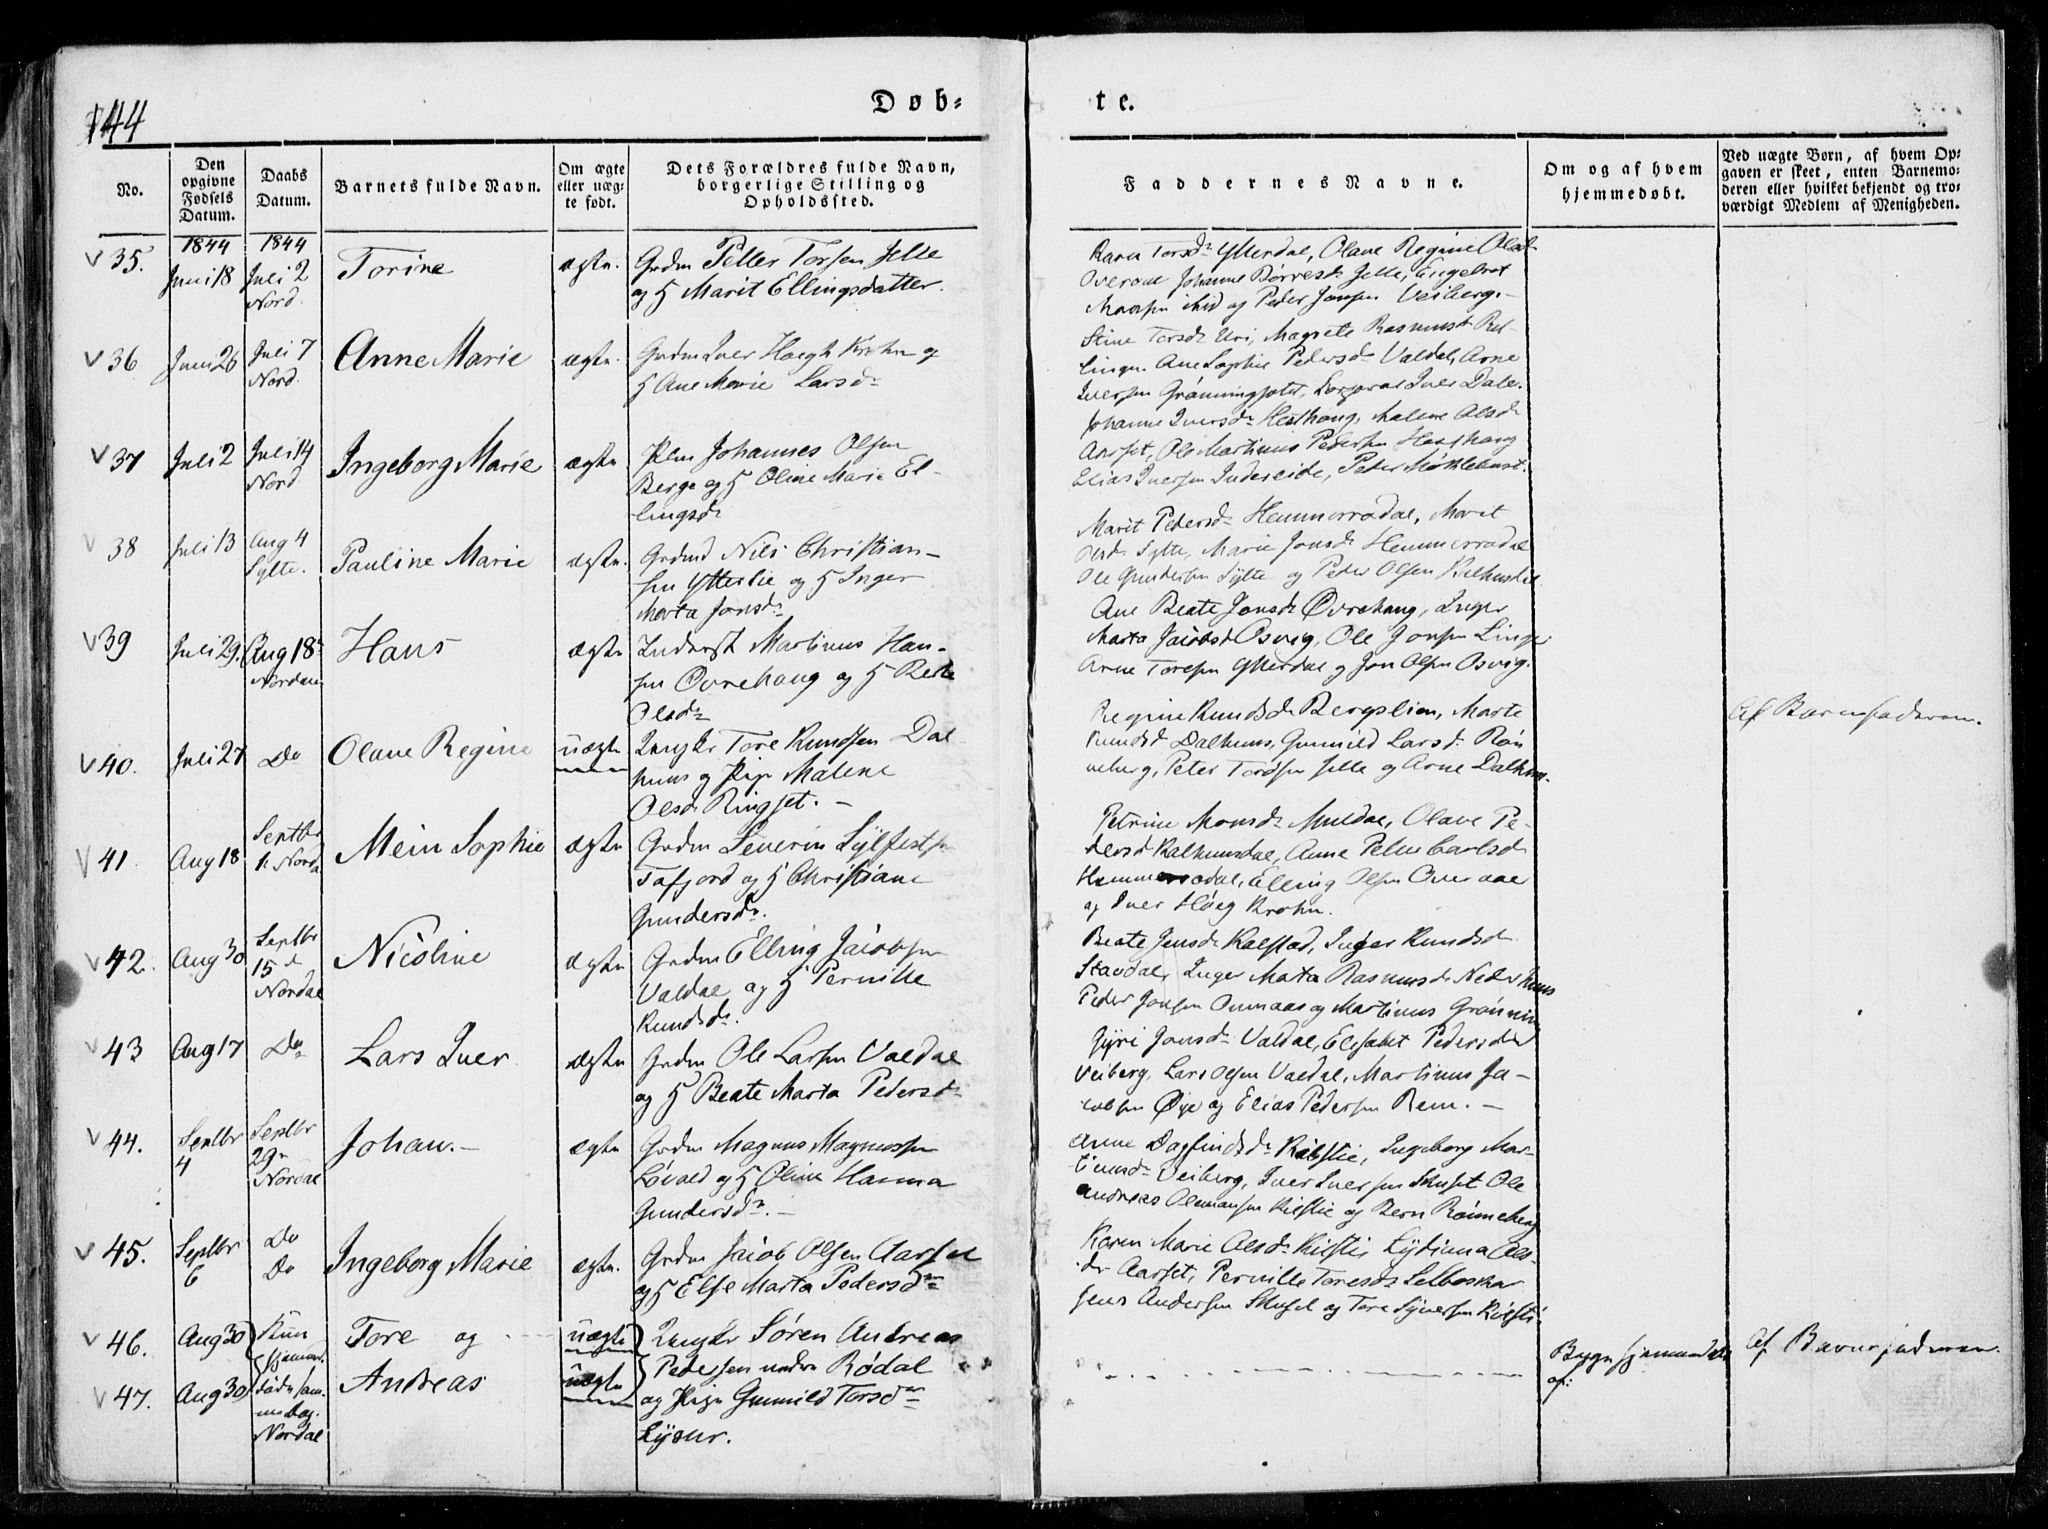 144
Døb-
te.
No.
Den opgivne Fødsels Datum.
Daabs Datum.
Barnets fulde Navn.
Om ægte eller uægte født.
Dets Forældres fulde Navn, borgerlige Stilling og Opholdssted.
Faddernes Navne.
Om og af hvem hjemmedøbt.
Ved uægte Børn, af hvem Opgaven er skeet, enten Barnemoderen eller hvilket bekjendt og troværdigt Medlem af Menigheden.
1844
1844
35.
Juni 18
Juli 2
Nord.
Torine
ægte.
Grdm Petter Torsen Jelle
og H Marit Ellingsdatter.
Torsd Ytterdal, Olave Regine Olsd
Overaae Johanne Børresd Jelle, Engebret
og Peder Jonsen Veiberg.
36
Juni 26
Juli 7
Nord.
Anne Marie
ægte.
Grdm Iver Høegh Krohn og
H Ane Marie Larsd
Stine Torsd Uri, Magrete Rasmusd Rel-
lingen. Ane Sophie Pedersd Valdal, Arne
Iversen Grønningsæter, Iver Dale.
37
Juli 2
Juli 14
Nord
Ingeborg Marie
ægte
Johannes Olsen
Berge og H Oline Marie El-
lingsd
Johanne Iversd Hesthaug, Malene Olsd
Aarset, Ole Martinus Pedersen Hesthaug
Elias Iversen Indreeide, Peter Møklebust.
38
Juli 13
Aug 4
Sylte.
Pauline Marie
ægte.
Grdmd Nils Christian-
sen Ytterlie og H Inger
Marta Jonsd
Marit Pedersd Hemmerradal, Marit
Olsd Sylte, Marie Jonsd Hemmerradal
Ole Gundersen Sylte og Peter Olsen
39
Juli 29.
Aug 18
Nordal
Hans
ægte
Inderst Martinus Han-
sen Øvrehaug og H Beate
Olsd
Ane Beate Jonsd Øvrehaug, Inger
Marta Jacobsd Osvig, Ole Jonsen Linge
Arne Toresen Ytterdal og Jon Olsen Osvig.
40.
Juli 27
Do
Olave Regine
uægte
Ungkr Tore Knudsen Dal-
huus og Pige Malene
Olsd Ringset. –
Regine Knudsd Bergslien, Marte
Knudsd Dalhuus, Gunnild Larsd Røn-
neberg, Peter Tordsen Jelle og Arne Dalhuus.
Af Barnefaderen.
41
Aug 18
Septbr
1. Nordal
Mein Sophie
ægte
Grdm Severin Sylfestsen
Tafjord og H Christiane
Gundersd.
Petrine Monsd Muldal, Olave Pe-
dersd Kalhusdal, Anne Peline Carlsd
Hemmerradal, Elling Olsen Overaae
og Iver Høeg Krohn.
42.
Aug 30
Septbr
15 d
Nordal
Nicoline
ægte
Grdm Elling Jacobsen
Valdal og H Pernille
Knudsd.
Beate Jensd Kalstad, Inger Knudsd
Stavdal, Inger Marta Rasmusd Nedrehuus
Peder Jonsen og Martinus Grønning
43
Aug 17
Do
Lars Iver
ægte
Grdm Ole Larsen Valdal
og H Beate Marta Pedersd
Gyri Jonsd Valdal, Elisabet Pedersd
Veiberg, Lars Olsen Valdal, Martinus Ja-
cobsen Øye og Elias Pedersen Rem. –
44.
Septbr
4
Septbr
29
Nordal
Johan. –
ægte
Grdm Magnus Magnussen
Løvald og H Oline Hanna
Gundersd. –
Anne Dagfindsd Kilstie, Ingeborg Mar-
tinusd Veiberg, Iver Iversen Skuset Ole
Andreas Olemansen Kilstie og Bern Rønneberg
45.
Septbr
6
Do
Do
Ingeborg Marie
ægte.
Grdm Jacob Olsen Aarset
og H Else Marta Pedersd
Karen Marie Olsd Kilstie Lydiana Ols-
d Aarset, Pernille Toresd Selboskar
Jens Andersen Skuset og Tore Syversen Kilsti
46.
Aug 30
Kun
hjemme
døbte sam-
me Dag.
Nordal
Tore og
uægte
Ungkr Søren Andreas
Pedersen nedre Rødal
og Pige Gunnild Torsd
47.
Aug 30
Andreas
uægte
Begge hjemmedøbt
af:
Af Barnefaderen.